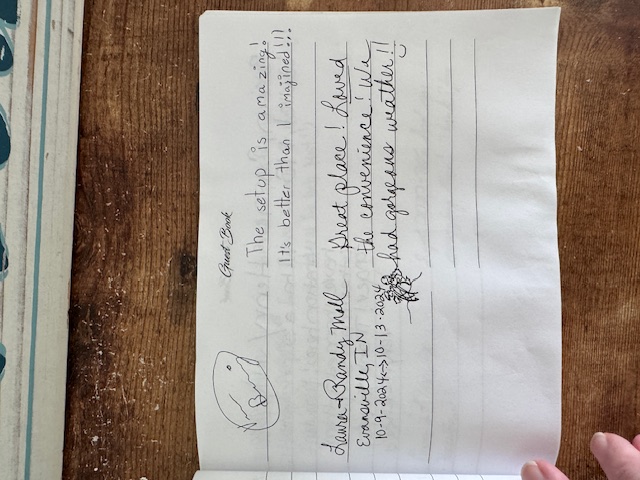 Guest Book
The setup is amazing!
It's better than I imajined!!!
Laura + Randy Moll Great place! Loved
Evansville, IN the convenience! We
10-9-2024 <-> 10-13-2024 had gorgeous weather!!